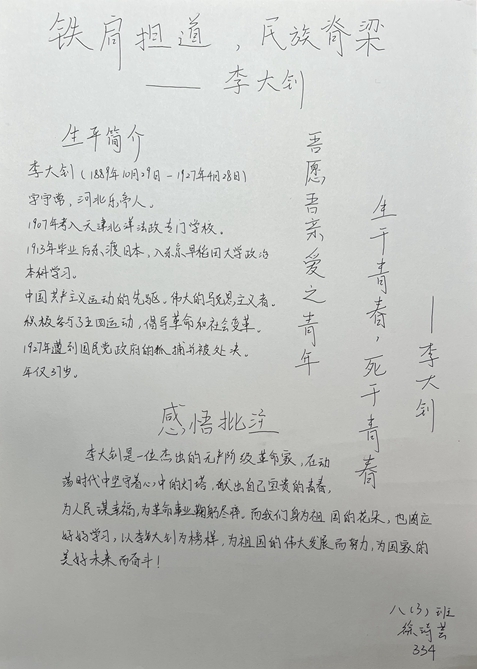 铁肩担道，民族脊梁
——李大钊
生平简介
李大钊（1889年10月29日-1927年4月28日）
字守常，河北乐亭人。
1907年考入天津北洋法政专门学校。
1913年毕业后东渡日本，入东京早稻田大学政治
本科学习。
中国共产主义运动的先驱。伟大的马克思主义者。
积极参与了五四运动，倡导革命和社会变革。
1927年遭到国民党政府的抓捕并被处决。
年仅37岁。
吾愿吾亲爱之青年
生于青春，死于青春
——李大钊
感悟批注
李大钊是一位杰出的无产阶级革命家，在动
荡时代中坚守着心中的灯塔，献出自己宝贵的青春，
为人民谋幸福，为革命事业鞠躬尽瘁。而我们身为祖国的花朵，也因应
好好学习，以李大钊为榜样，为祖国的伟大发展而努力，为国家的
美好未来而奋斗！
八（3）班
徐琦芸
334